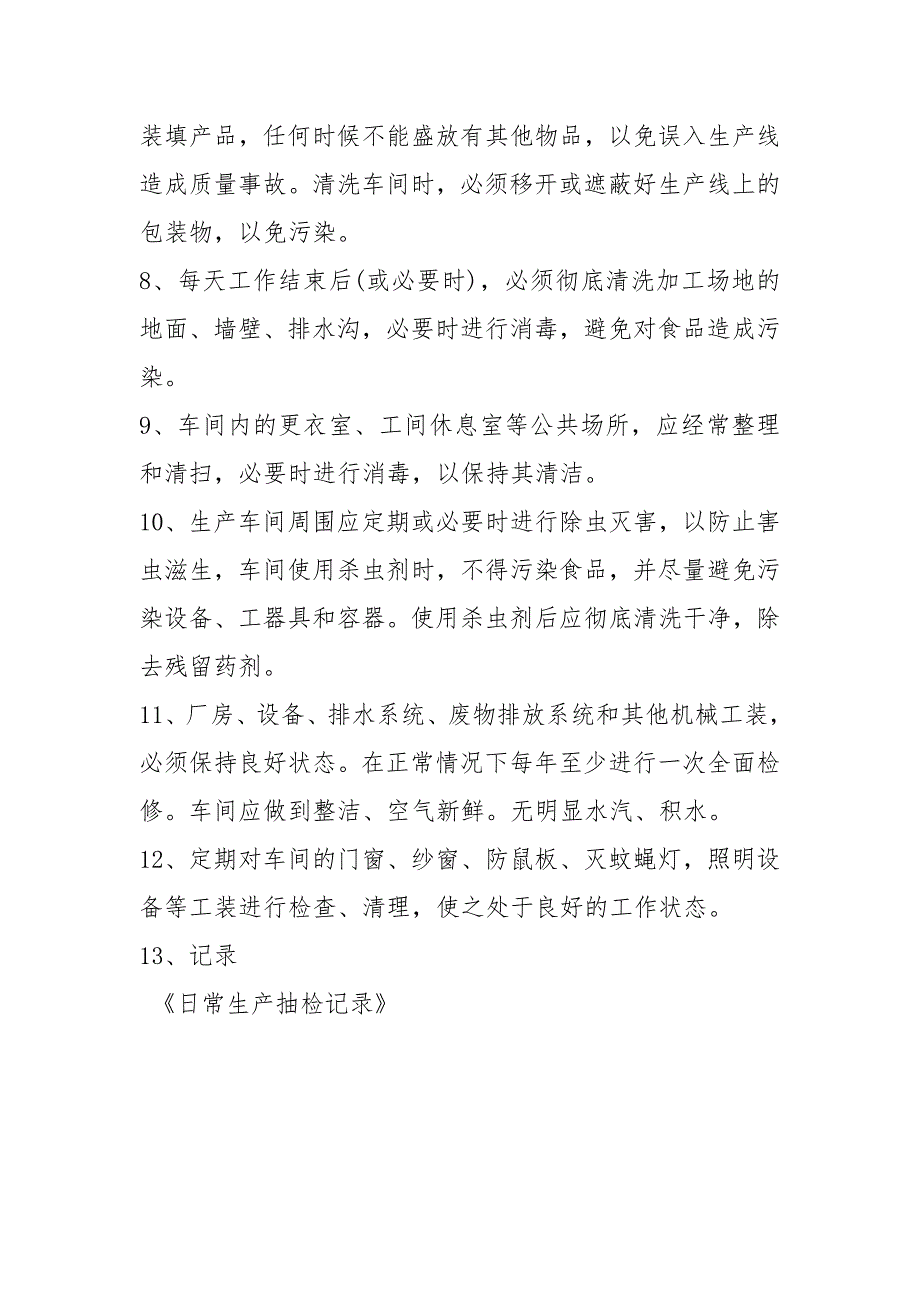 装填产品，任何时候不能盛放有其他物品，以免误入生产线
造成质量事故。清洗车间时，必须移开或遮蔽好生产线上的
包装物，以免污染。
8、每天工作结束后(或必要时)，必须彻底清洗加工场地的
地面、墙壁、排水沟，必要时进行消毒，避免对食品造成污
染。
9、车间内的更衣室、工间休息室等公共场所，应经常整理
和清扫，必要时进行消毒，以保持其清洁。
10、生产车间周围应定期或必要时进行除虫灭害，以防止害
虫滋生，车间使用杀虫剂时，不得污染食品，并尽量避免污
染设备、工器具和容器。使用杀虫剂后应彻底清洗干净，除
去残留药剂。
11、厂房、设备、排水系统、废物排放系统和其他机械工装，
必须保持良好状态。在正常情况下每年至少进行一次全面检
修。车间应做到整洁、空气新鲜。无明显水汽、积水。
12、定期对车间的门窗、纱窗、防鼠板、灭蚊蝇灯，照明设
备等工装进行检查、清理，使之处于良好的工作状态。
13、记录
《日常生产抽检记录》